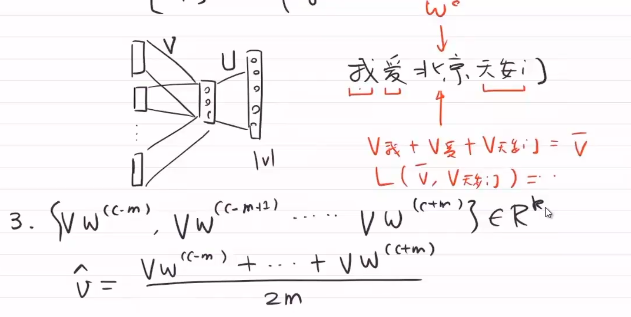 w^c
V
U
我爱北京天安门
|v|
V我 + V爱 + V天安门 = v̄
L(v̄, V天安门) = ..
3. {Vw^(c-m), Vw^(c-m+1) ..... Vw^(c+m)} ∈ R^k
v̂ = (Vw^(c-m) + ... + Vw^(c+m)) / 2m